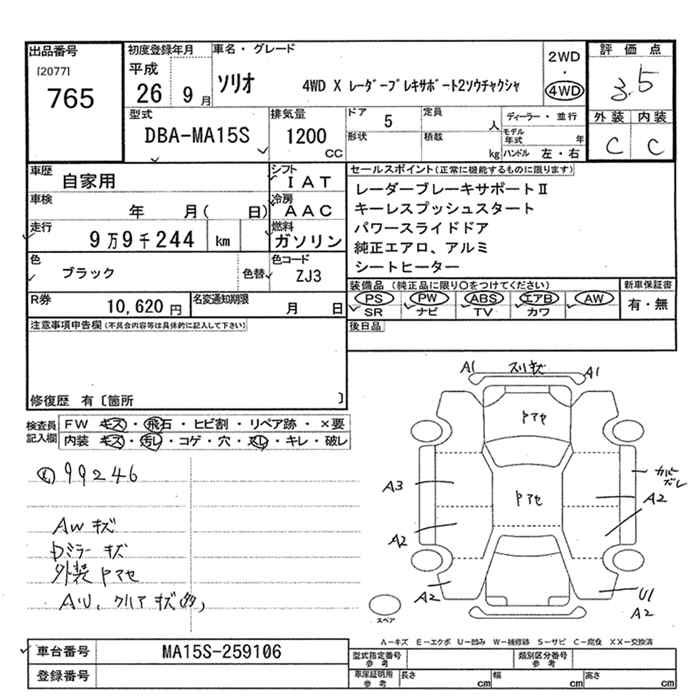 出品番号 初度登録年月 車名・グレード 2WD 評価点
[2077] 平成 ・
765 26 9月 ソリオ 4WD X レーダーブレキサポート2ソウチャクシャ 4WD 3.5
型式 排気量 ドア 5 定員 人 ディーラー・並行 外装 内装
DBA-MA15S 1200 CC 形状 積載 kg モデル年式 年 C C
ハンドル 左・右
車歴 自家用 シフト IAT セールスポイント(正常に機能するものに限ります)
車検 年 月( 日) 冷房 AAC レーダーブレーキサポートⅡ
キーレスプッシュスタート
走行 9万9千244 km 燃料 ガソリン パワースライドドア
純正エアロ、アルミ
色 ブラック 色替 色コード ZJ3 シートヒーター
装備品(純正品に限り○をつけてください) 新車保証書
R券 10,620円 名変通知期限 月 日 PS PW ABS エアB AW 有・無
SR ナビ TV カワ
注意事項申告欄(不具合内容等は具体的に記入して下さい) 後日品
修復歴 有〔箇所 〕
検査員記入欄 FW キズ・飛石・ヒビ割・リペア跡・×要
内装 キズ・汚レ・コゲ・穴・スレ・キレ・破レ
A1 スリキズ A1
99246
AW キズ
Dミラー キズ
外装 ヤマセ
A,U, クリアキズ
ヤマセ
ヤマセ
A3
カバーズレ
A2
A2
A2
U1
A2
スペア
A-キズ E-エクボ U-凹み W-補修跡 S-サビ C-腐食 XX-交換済
車台番号 MA15S-259106 型式指定番号 参考 類別区分番号 参考
登録番号 車庫証明用 参考 長さ cm 幅 cm 高さ cm